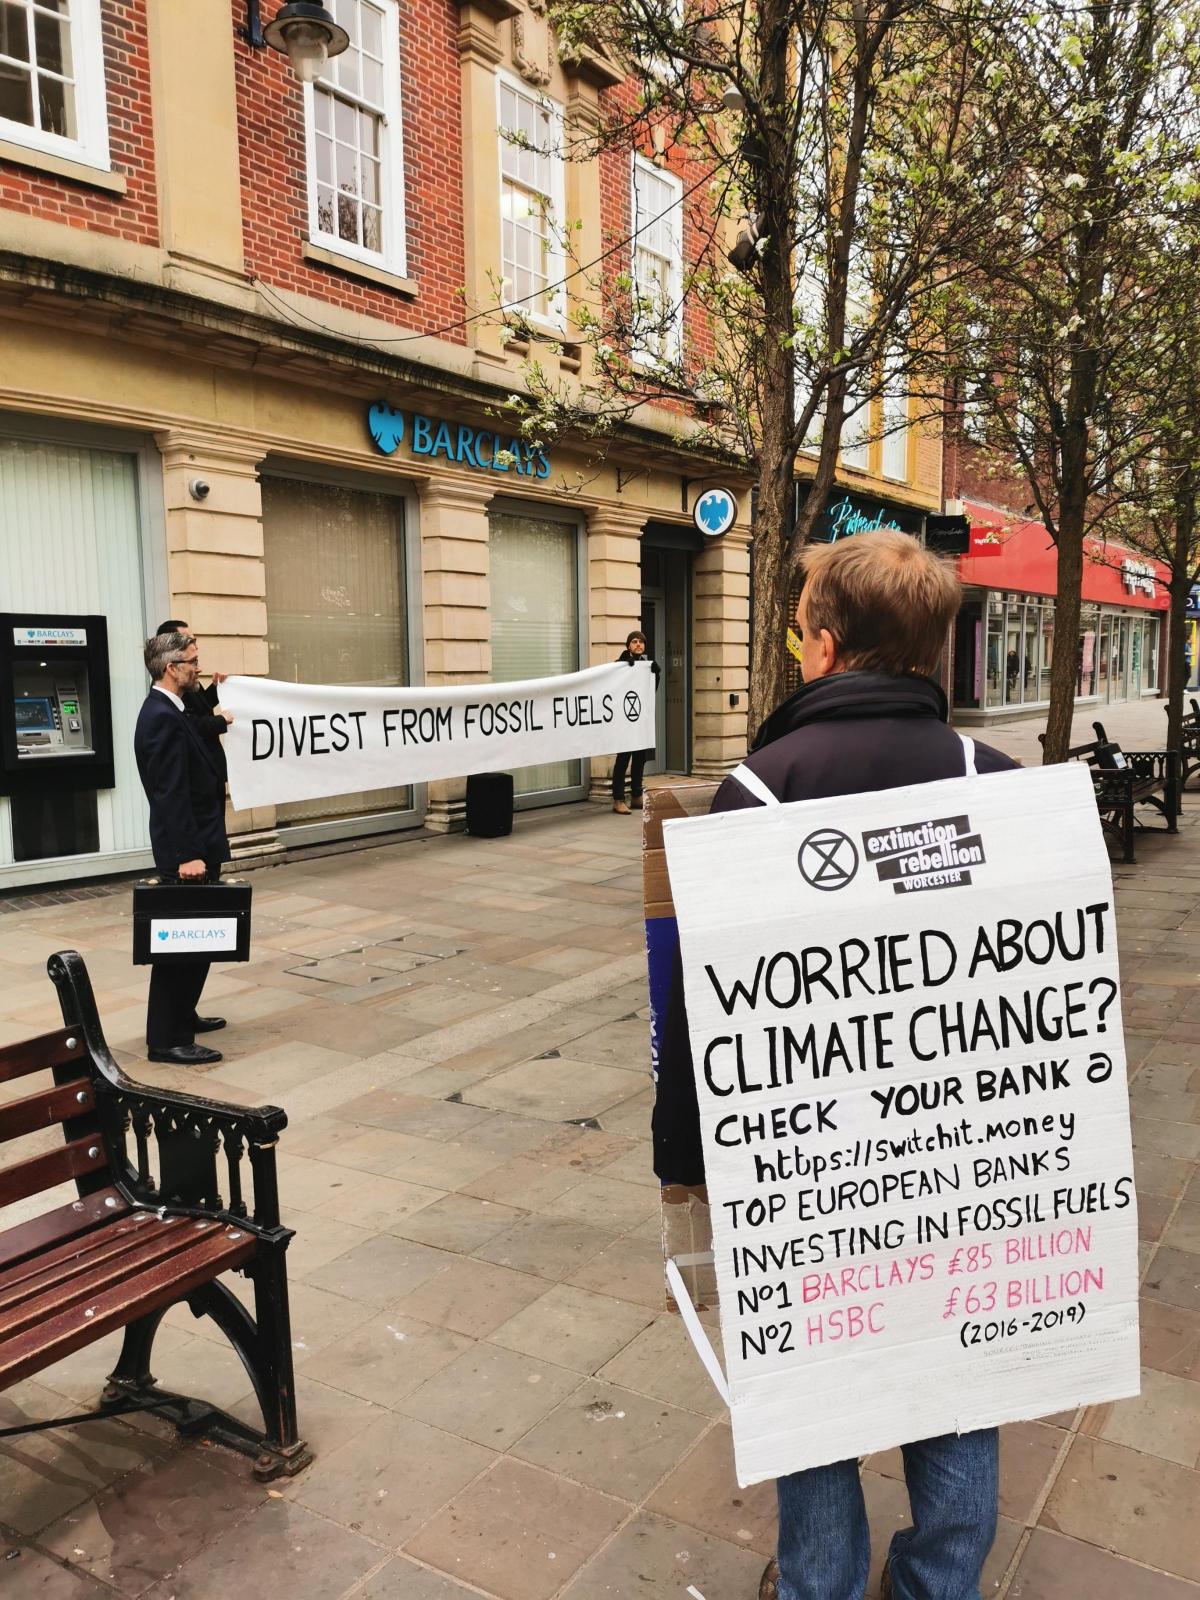 BARCLAYS
BARCLAYS
DIVEST FROM FOSSIL FUELS
BARCLAYS
extinction
rebellion
WORCESTER
WORRIED ABOUT
CLIMATE CHANGE?
CHECK YOUR BANK @
https://switchit.money
TOP EUROPEAN BANKS
INVESTING IN FOSSIL FUELS
Nº1 BARCLAYS £85 BILLION
Nº2 HSBC £63 BILLION
(2016-2019)